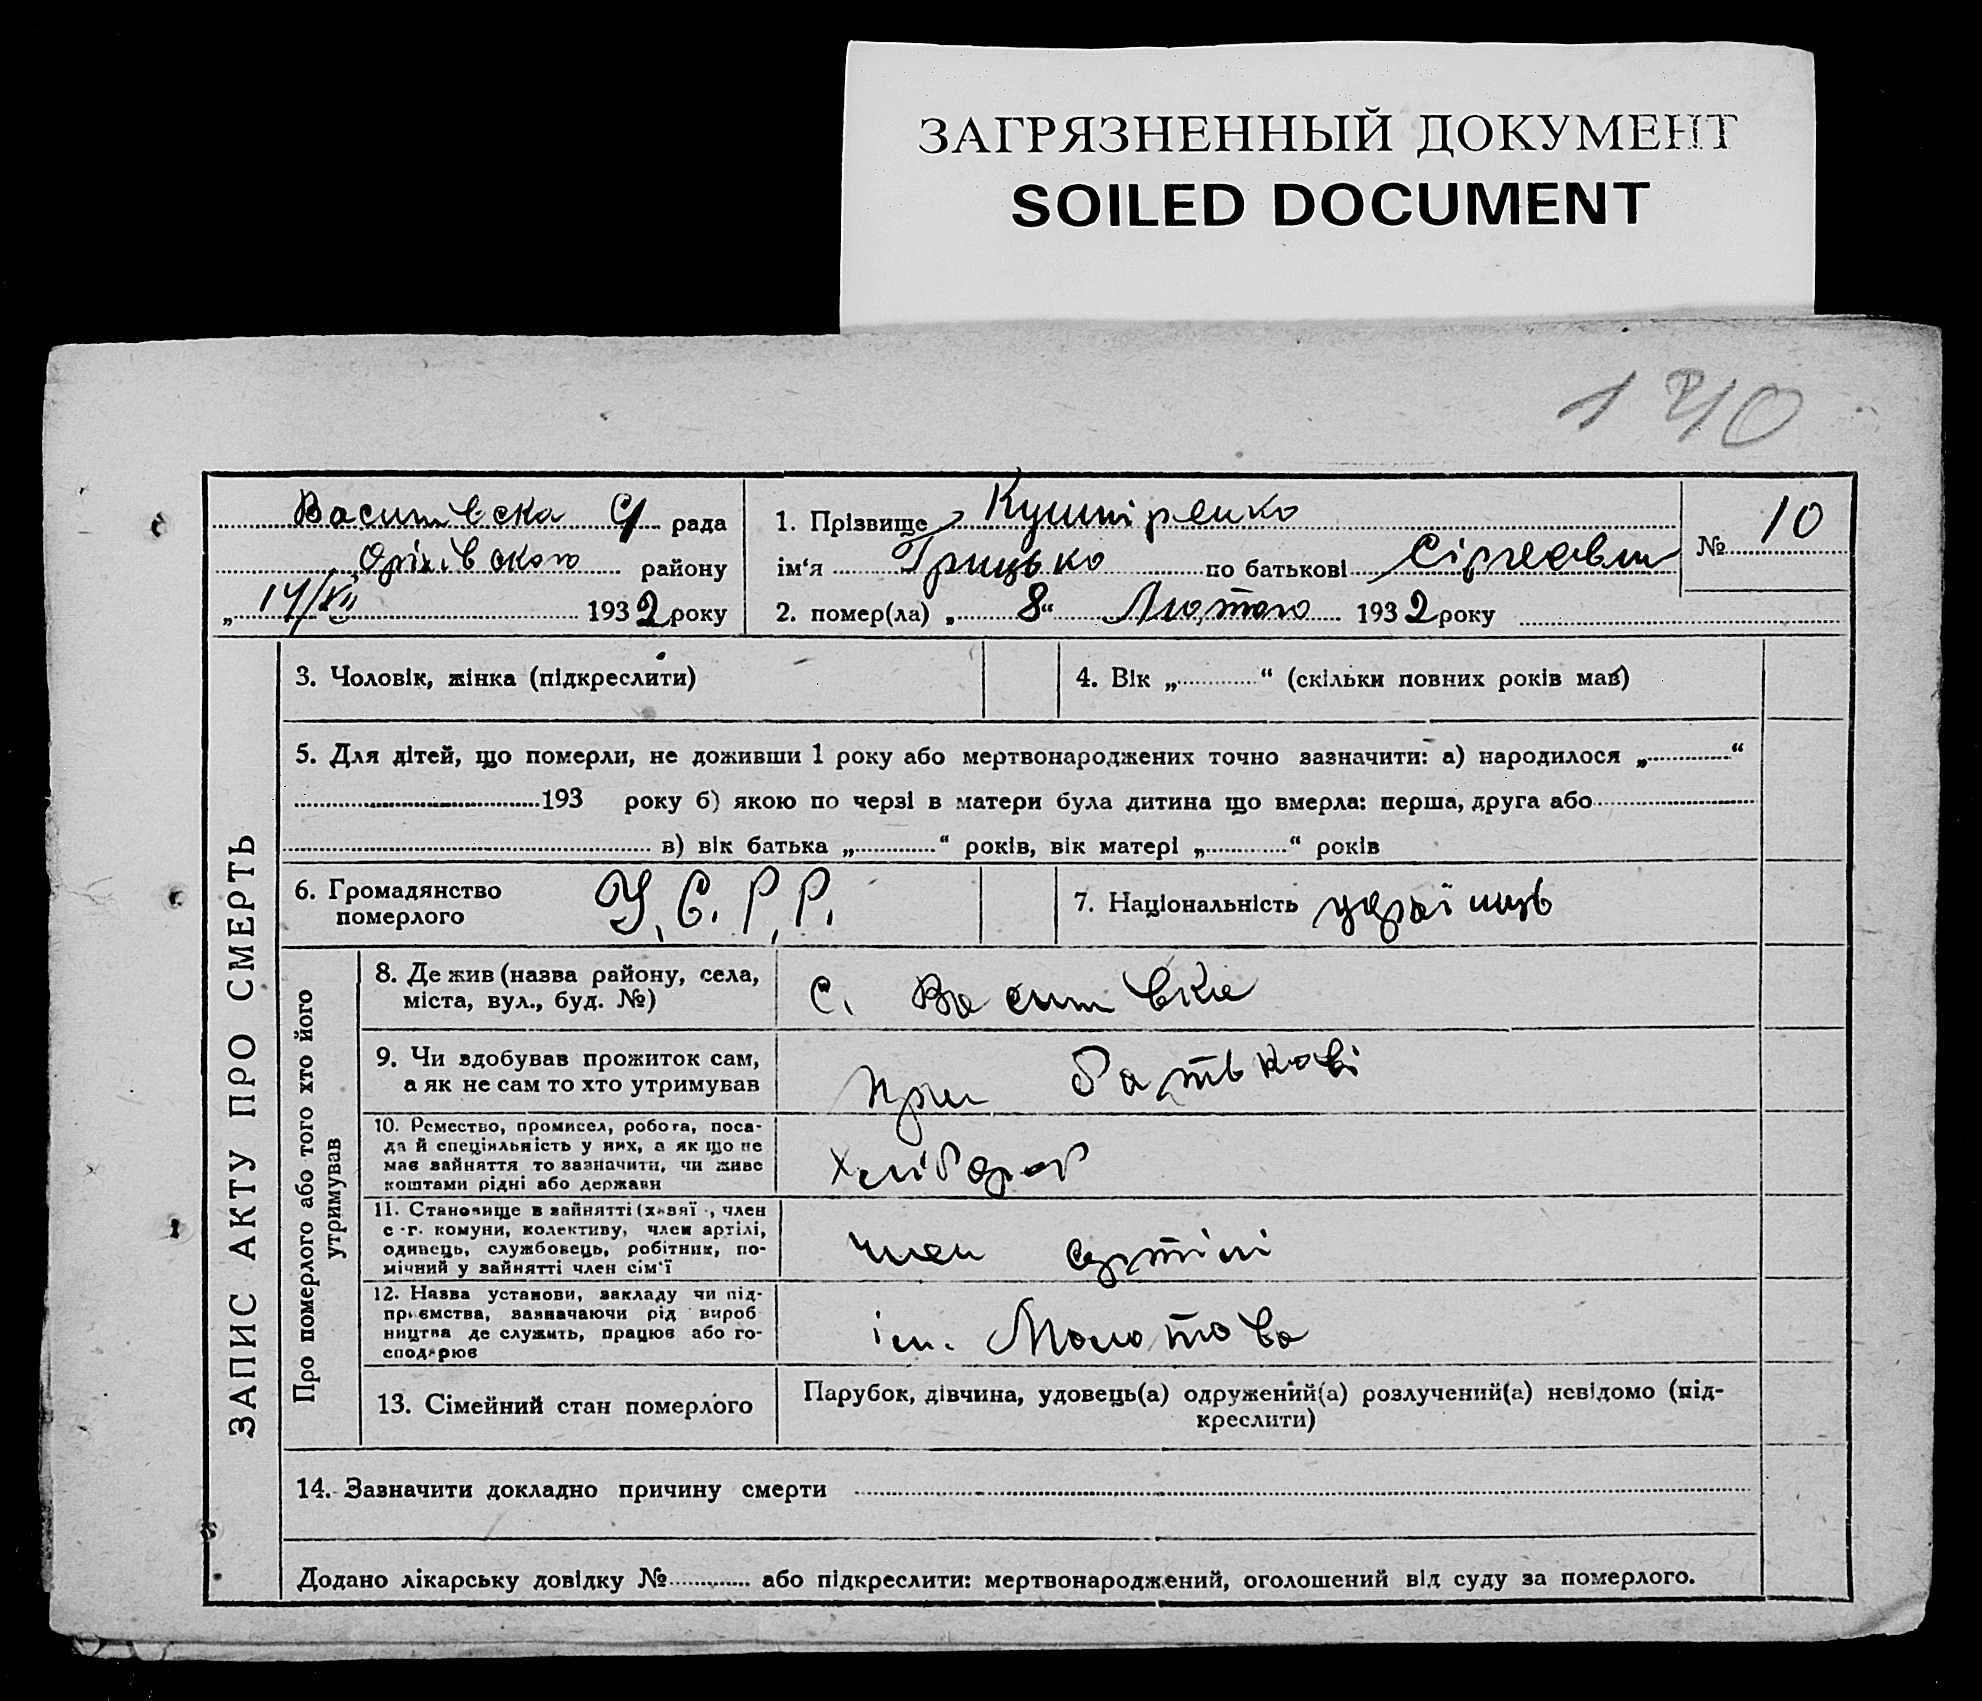 ЗАГРЯЗНЕННЫЙ ДОКУМЕНТ
SOILED DOCUMENT
10
рада
Оріхівского району
„14/XII 1932 року
1. Прізвище Кушніренко
ім‘я Грицько по батькові
№ 10
2. помер(ла) „8“ Лютого 1932 року
ЗАПИС АКТУ ПРО СМЕРТЬ
3. Чоловік, жінка (підкреслити)
4. Вік „ “ (скільки повних років мав)
5. Для дітей, що померли, не доживши 1 року або мертвонароджених точно зазначити: а) народилося „ “
193 року б) якою по черзі в матери була дитина що вмерла: перша, друга або
в) вік батька „ “ років, вік матері „ “ років
6. Громадянство
померлого
У.С.Р.Р.
7. Національність українць
Про померлого або того хто його
утримував
8. Де жив (назва району, села,
міста, вул., буд. №)
с.
9. Чи здобував прожиток сам,
а як не сам то хто утримував
при батькові
10. Ремество, промисел, робота, поса-
да й спеціяльність у них, а як що не
має зайняття то зазначити, чи живе
коштами рідні або держави
хлібороб
11. Становище в зайнятті (хазяї , член
с.-г. комуни, колективу, член артілі,
одинець, службовець, робітник, по-
мічний у зайнятті член сім‘ї
член артілі
12. Назва установи, закладу чи під-
приємства, зазначаючи рід вироб
ництва де служить, працює або го-
сподарює
ім. Молотова
13. Сімейний стан померлого
Парубок, дівчина, удовець(а) одружений(а) розлучений(а) невідомо (під-
креслити)
14. Зазначити докладно причину смерти
Додано лікарську довідку № або підкреслити: мертвонароджений, оголошений від суду за померлого.